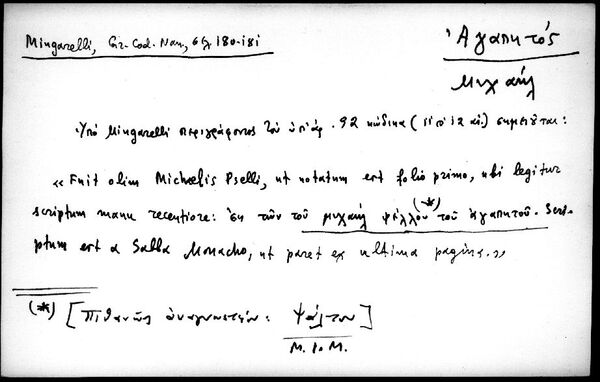 Mingarelli, Gr. Cod. Nan, σελ 180-181
Ἀγαπητός
Μιχαήλ
Ὑπό Mingarelli περιγράφοντος τὸν ὑπ' ἀρ. 92 κώδικα (11 ἢ 12 αἰ.) σημειοῦται:
« Fuit olim Michaelis Pselli, ut notatum est folio primo, ubi legitur
scriptum manu recentiore: ἐκ τῶν τοῦ μιχαήλ ψέλλου (*) τοῦ ἀγαπητοῦ. Scri-
ptum est a Sabba Monacho, ut patet ex ultima pagina.»
(*) [Πιθανῶς ἀναγνωστέον: Ψάλτου]
Μ. Ι. Μ.